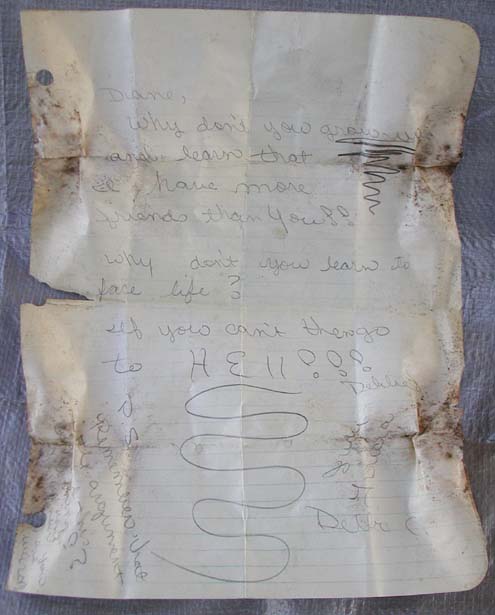 Diane,
Why don't you grow up
and learn that
I have more
friends than you!!
Why don't you learn to
face life?
If you can't then go
to H E 11 !!!
Debbie
P.S.
Remember that
argument
Debi C